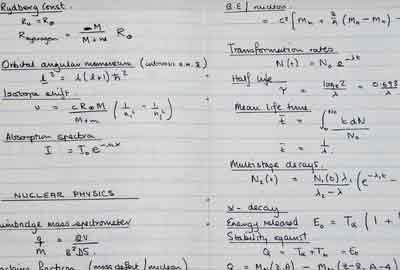 Rydberg Const.
R₀ = R∞
R hydrogen = M / M + m R∞
Orbital angular momentum (
l² = l(l+1) ħ²
Isotope shift.
υ = cR∞M / M+m (1/n₁² - 1/n₂²)
Absorption spectra
I = I₀ e
NUCLEAR PHYSICS
mass spectrometer
q/m = 2V / B²DS
fraction (mass defect / nucleon)
B.E / nucleon
= c² [ Mn + Z/A (MH - Mn) -
Transformation rates
N(t) = N₀ e^-λt
Half life
τ = loge2 / λ = 0.693 / λ
Mean life time
t̄ = ∫ t dN / N₀
t̄ = 1/λ
Multistage decays.
N₂(t) = N₁(0) λ₁ / λ₂ - λ₁ (e^-λ₁t -
α - decay
Energy released E₀ = Tα (1 +
Stability against
Q = Tα + Tb = E₀
Q = M (Z,A) - M (Z-2, A-4)